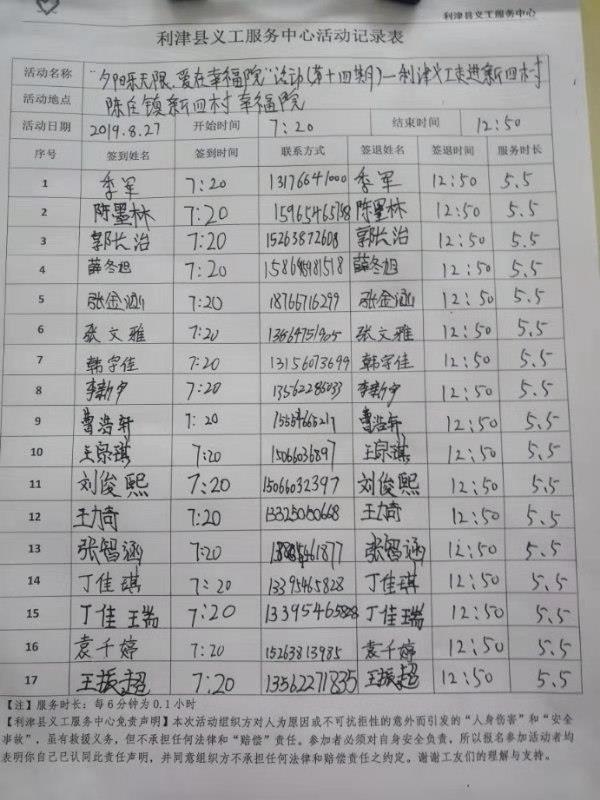 利津县义工服务中心
利津县义工服务中心活动记录表
活动名称 "夕阳乐无限,爱在幸福院"活动(第十四期)—利津义工走进新四村
活动地点 陈庄镇新四村幸福院
活动日期 2019.8.27 开始时间 7:20 结束时间 12:50
序号 签到姓名 签到时间 联系方式 签退姓名 签退时间 服务时长
1 季军 7:20 13176641000 季军 12:50 5.5
2 陈墨林 7:20 陈墨林 12:50 5.5
3 郭长治 7:20 15263872608 郭长治 12:50 5.5
4 薛冬旭 7:20 薛冬旭 12:50 5.5
5 张金涵 7:20 18766716299 张金涵 12:50 5.5
6 张文雅 7:20 张文雅 12:50 5.5
7 韩字佳 7:20 13156073699 韩字佳 12:50 5.5
8 李新夕 7:20 13562286033 李新夕 12:50 5.5
9 曹浩轩 7:20 曹浩轩 12:50 5.5
10 王宗琪 7:20 15066036897 王宗琪 12:50 5.5
11 刘俊熙 7:20 15066032397 刘俊熙 12:50 5.5
12 7:20 13325050668 12:50 5.5
13 张智涵 7:20 张智涵 12:50 5.5
14 丁佳琪 7:20 13395465828 丁佳琪 12:50 5.5
15 丁佳瑞 7:20 13395465828 丁佳瑞 12:50 5.5
16 袁千婷 7:20 15263813985 袁千婷 12:50 5.5
17 王振超 7:20 13562271835 王振超 12:50 5.5
【注】服务时长:每6分钟为0.1小时
【利津县义工服务中心免责声明】本次活动组织方对人为原因或不可抗拒性的意外而引发的"人身伤害"和"安全
事故",虽有救援义务,但不承担任何法律和"赔偿"责任。参加者必须对自身安全负责,所以报名参加活动者均
表明你自己已认同此责任声明,并同意组织方不承担任何法律和赔偿责任之约定。谢谢工友们的理解与支持。